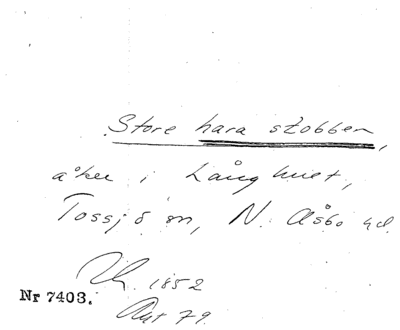 Store hara stobben,
åker i Långhult,
Tossjö sn, N. Åsbo hd.
1852
Nr 7403.
Akt 79.